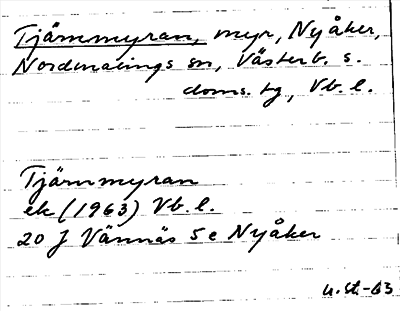 Tjärnmyran, myr, Nyåker,
Nordmalings sn, Västerb. s.
doms. tg, Vb. l.
Tjärnmyran
ek (1963) Vb. l.
20 J Vännäs 5 e Nyåker
u.st.-63